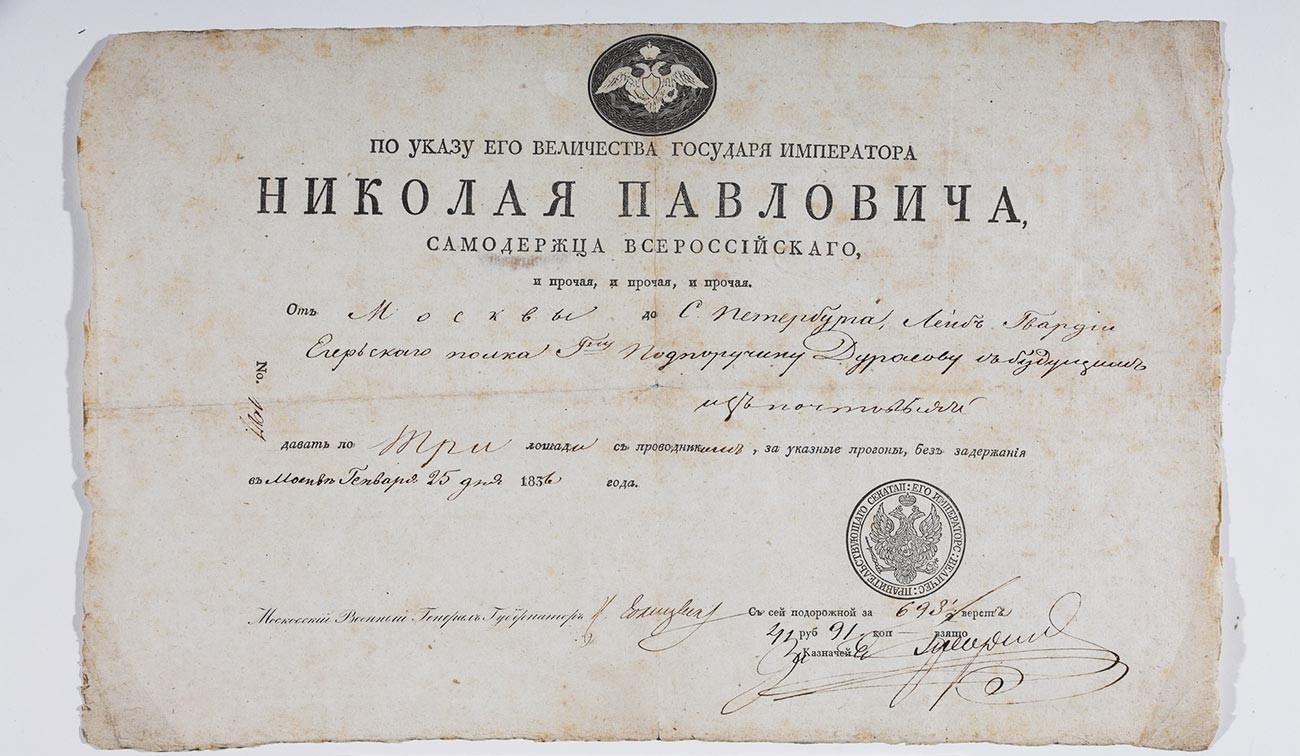 ПО УКАЗУ ЕГО ВЕЛИЧЕСТВА ГОСУДАРЯ ИМПЕРАТОРА
НИКОЛАЯ ПАВЛОВИЧА,
САМОДЕРЖЦА ВСЕРОССІЙСКАГО,
и прочая, и прочая, и прочая.
Отъ Москвы до С. Петербурга, Лейбъ Гвардіи
Егерьскаго полка Гну Подпоручику Дурасову съ будущимъ
No.
давать по три лошади съ проводникомъ, за указные прогоны, безъ задержанія
въ Москвѣ Генваря 25 дня 1836 года.
ПРАВИТЕЛЬСТВУЮЩАГО СЕНАТА ЕГО ИМПЕРАТОРС: ВЕЛИЧЕС:
Московскій Военный Генералъ Губернаторъ
Съ сей подорожной за 698 верстъ
руб 91 коп взято
Казначей